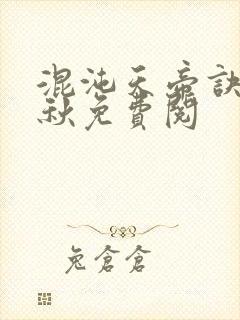 混沌天帝訣
秋免費閱
兔倉倉